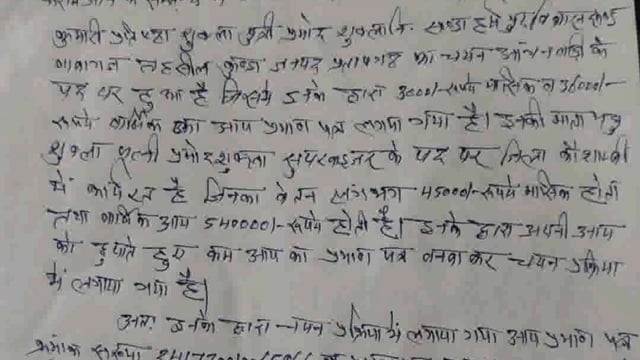 कुमारी प्रतिष्ठा शुक्ला पुत्री प्रमोद शुक्ला नि. खण्डा हमे पुर विकासखण्ड
बाबागंज तहसील कुण्डा जनपद प्रतापगढ़ का चयन आंगनबाड़ी के
पद पर हुआ है जिसमें इनके द्वारा 3000/-रूपये मासिक व 36000/-
रूपये वार्षिक का आय प्रमाण पत्र लगाया गया है। इनकी माता मधु
शुक्ला पत्नी प्रमोद शुक्ला सुपरवाइजर के पद पर जिला कौशाम्बी
में कार्यरत है जिनका वेतन लगभग 45000/-रूपये मासिक होती
तथा वार्षिक आय 540000/-रूपये होती है। इनके द्वारा अपनी आय
को छुपाते हुए कम आय का प्रमाण पत्र बनवाकर चयन प्रक्रिया
में लगाया गया है।
अतः इनके द्वारा चयन प्रक्रिया में लगाया गया आय प्रमाण पत्र
क्रमांक संख्या